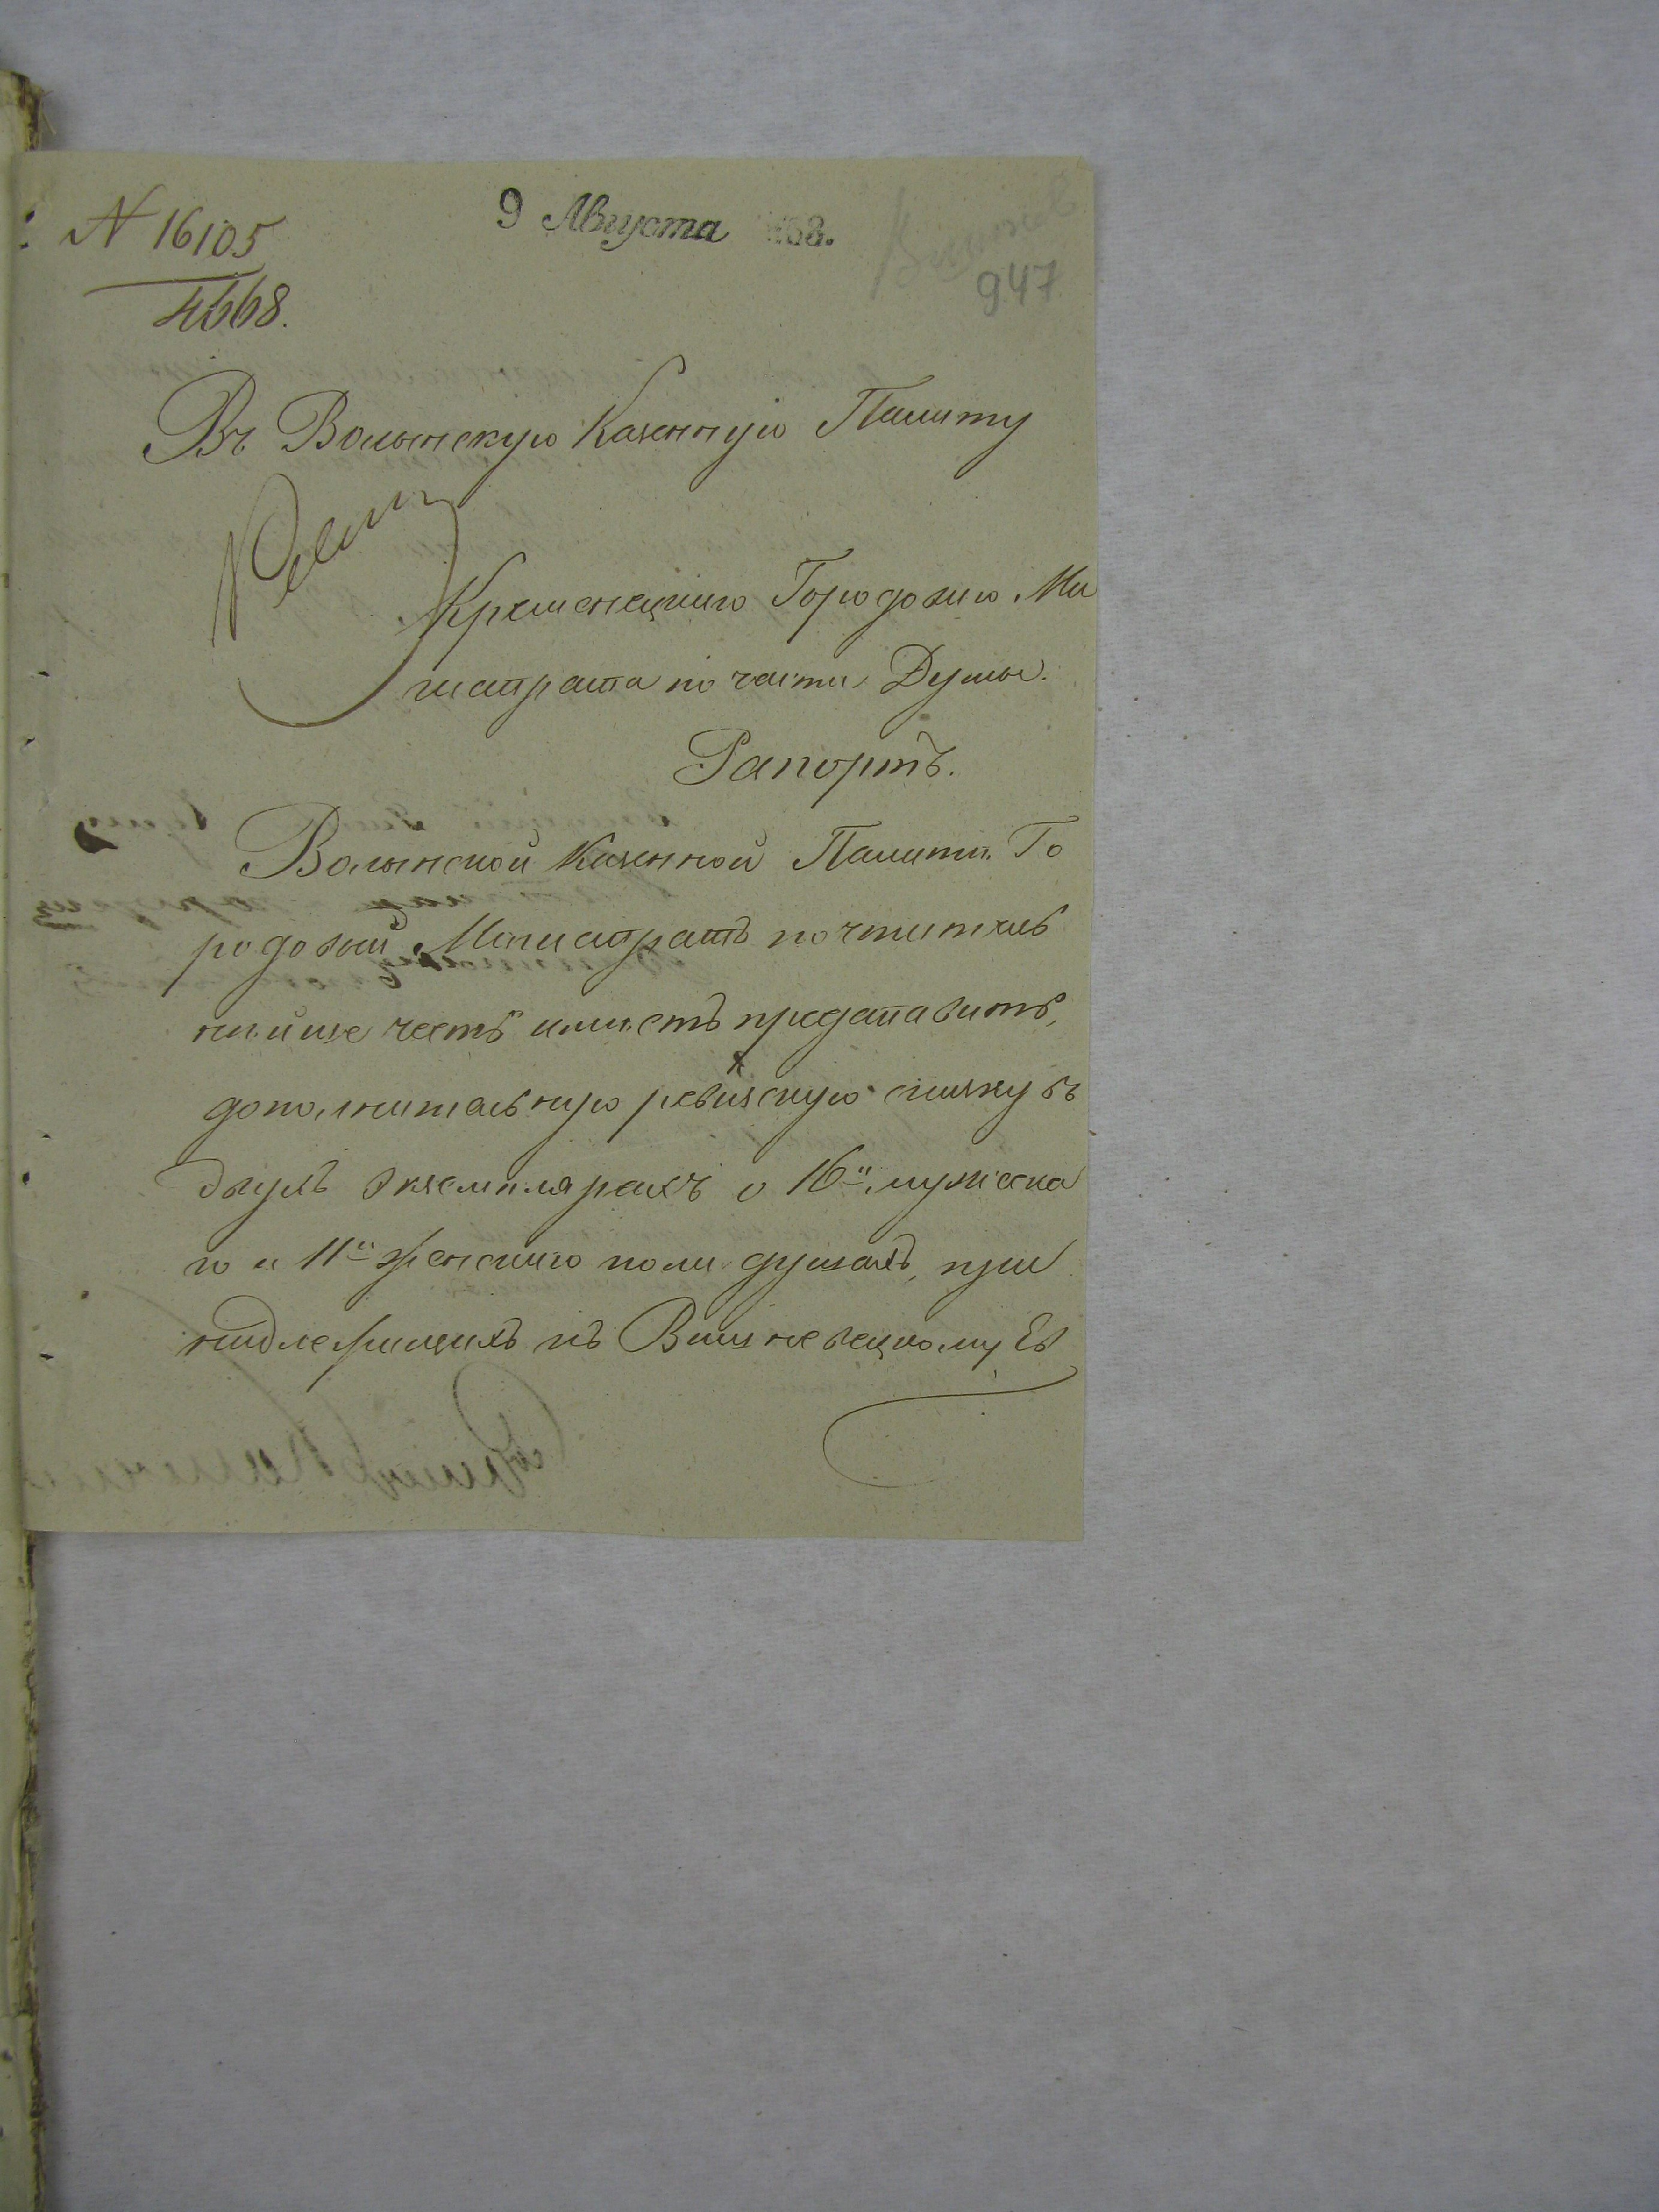 N 16105
4668.
9 Августа
947
Въ Волынскую Казенную Палату
Кременецкаго Городоваго Ма
гистрата по части Думы.
Рапортъ.
Волынской Казенной Палатѣ Го
родовый Магистратъ почтитель
нѣйше честь имѣетъ представить,
дополнительную ревизскую сказку въ
двухъ экземплярахъ о 16и мужеска
го и 11и женскаго пола душахъ, при
надлежащихъ къ Вишневецкому Ев